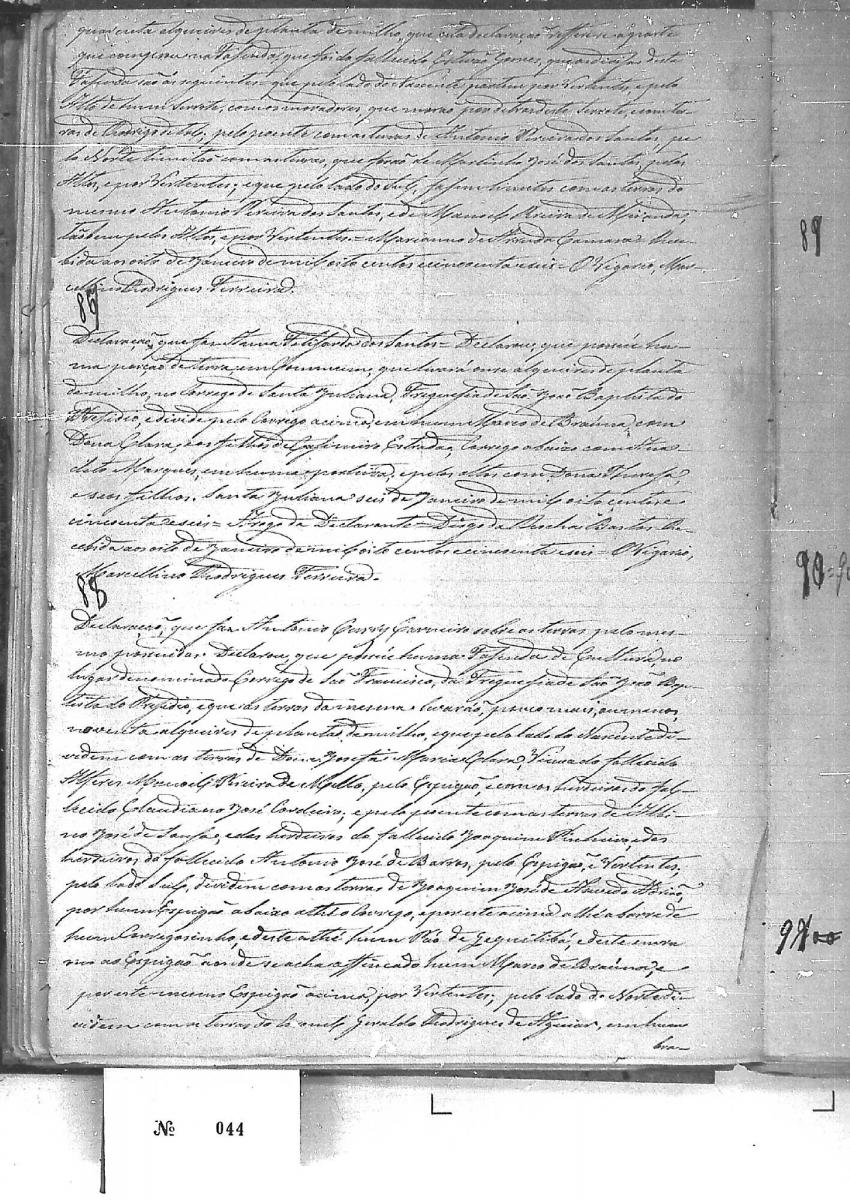 quarenta alqueires de planta de milho, que esta declaração reffere-se a parte
que comprou na Fasenda, que foi do fallecido Estevão Gomes, que as divisas desta
Fasenda são as seguintes que pelo lado do Nascente partem por Vertentes, e pelo
Alto de hum Serrote, com os moradores que morão por detraz deste Serrote, com ter-
ras de Rodrigo de tal; pelo poente com as terras de Antonio Pereira dos Santos, pe-
lo Norte limitão com as terras, que forão de Martinho José dos Santos, pelos
Altos, e por Vertentes; e que pelo lado do Sul, fasem limites com as terras do
mesmo Antonio Pereira dos Santos, e de Manoel Pereira de Miranda,
tãobem pelos Altos, e por Vertentes = Marianno de Arruda Camara = Rece-
bida aos oito de Janeiro de mil oito centos e cincoenta e seis = O Vigario, Mar-
cellino Rodrigues Ferreira.
Declaração, que faz Anna Felisarda dos Santos = Declarou, que possúe hu-
ma porção de terra, em Commum, que levará onze alqueires de planta
de milho, no Corrego de Santa Juliana, Freguesia de São João Baptista do
Presidio, e divide pelo Corrego acima, em hum Marco de Braúna, com
Dona Clara, e os filhos de Casimiro Estrada, Corrego abaixo com Ana-
cleto Marques, em huma porteira, e pelos altos com Dona Theresa,
e seos filhos. Santa Juliana seis de Janeiro de mil oito centos e
cincoenta e seis = A rogo da Declarante = Diogo da Rocha Bastos. Re-
cebida aos oito de Janeiro de mil oito centos e cincoenta e seis = O Vigario,
Marcellino Rodrigues Ferreira.
88
Declaração, que faz Antonio Curry Carneiro sobre as terras pelo mes-
mo possuidas. Declarou, que possúe huma Fasenda de Cultura no
lugar denominado Corrego de São Francisco, da Freguesia de São João Bap-
tista do Presidio, e que as terras da mesma levarão, pouco mais, ou menos,
noventa alqueires de planta de milho, e que pelo lado do Nascente di-
videm com as terras de Dona Josefa Maria Clara, Viuva do fallecido
Alferes Manoel Pereira de Mello, pelo Espigão, e com os herdeiros do fal-
lecido Claudiano José Cordeiro; e pelo poente com as terras de Albi-
no José de Sousa, e dos herdeiros do fallecido Joaquim Pinheiro, e dos
herdeiros do fallecido Antonio José de Barros, pelo Espigão, e Vertentes;
pelo lado Sul, dividem com as terras de Joaquim José de Azevedo
por hum Espigão abaixo athé o Corrego, e por este acima athé a barra de
hum Corregosinho, e deste athé hum Páo de Gequitibá, e deste
ao Espigão a onde se acha affincado hum Marco de Braúna, e
por este mesmo Espigão acima, por Vertentes; pelo lado do Norte di-
videm com as terras do Geraldo Rodrigues de Aguiar, em huma
bra-
89
90
Nº 044